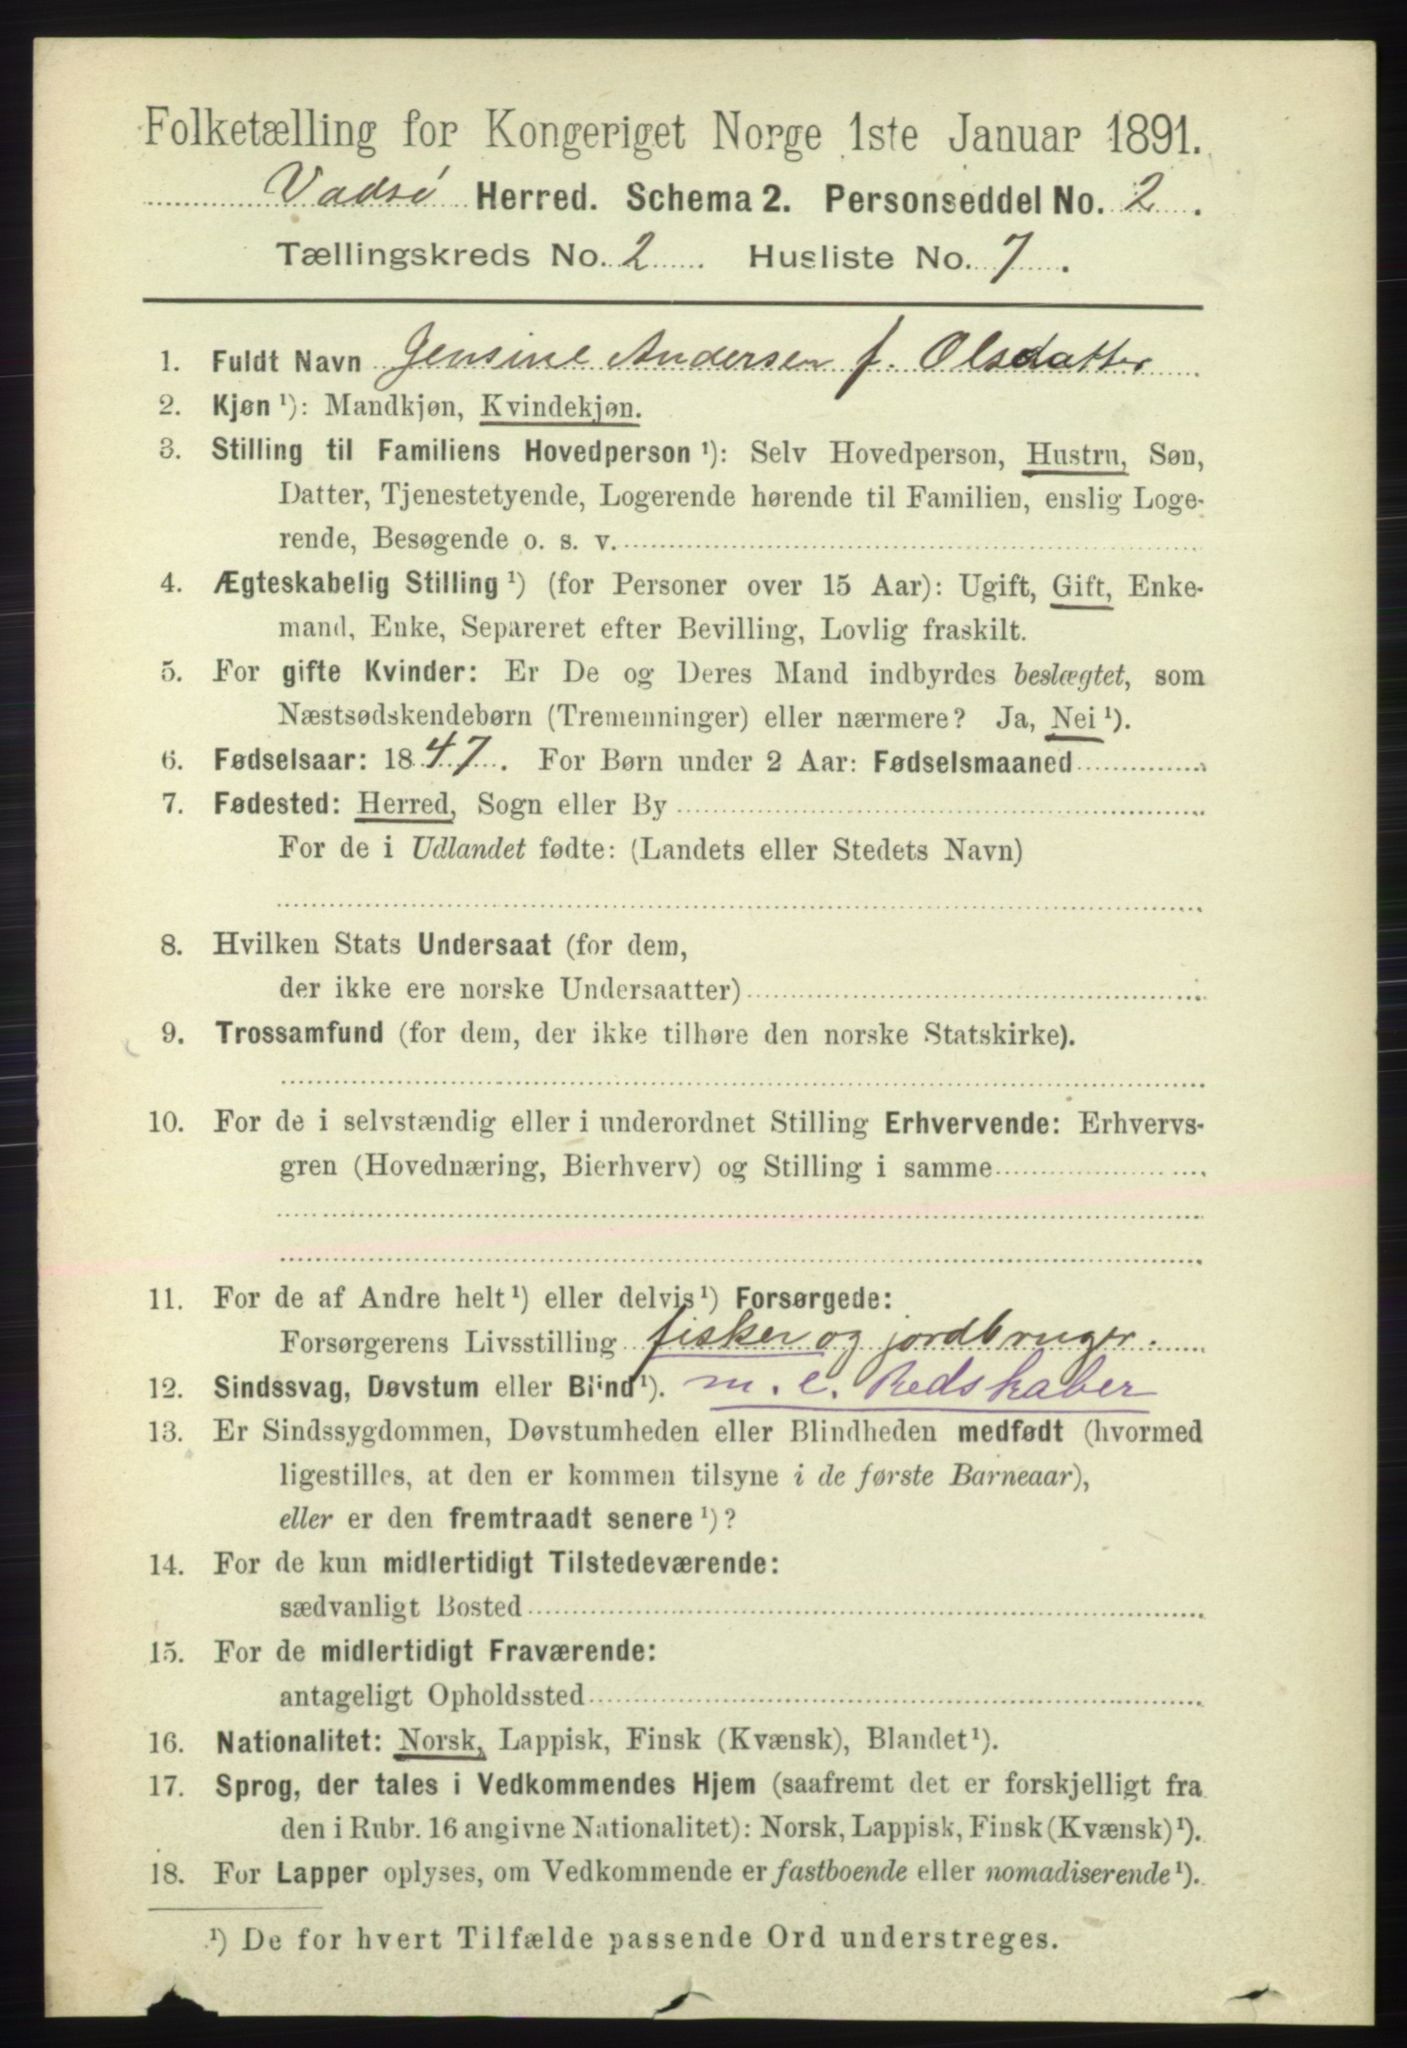 Folketælling for Kongeriget Norge 1ste Januar 1891.
Vadsø Herred. Schema 2. Personseddel No. 2.
Tællingskreds No. 2 Husliste No. 7.
1. Fuldt Navn Jensine Andersen f. Olsdatter
2. Kjøn ¹): Mandkjøn, Kvindekjøn.
3. Stilling til Familiens Hovedperson ¹): Selv Hovedperson, Hustru, Søn,
Datter, Tjenestetyende, Logerende hørende til Familien, enslig Loge-
rende, Besøgende o. s. v.
4. Ægteskabelig Stilling ¹) (for Personer over 15 Aar): Ugift, Gift, Enke-
mand, Enke, Separeret efter Bevilling, Lovlig fraskilt.
5. For gifte Kvinder: Er De og Deres Mand indbyrdes beslægtet, som
Næstsødskendebørn (Tremenninger) eller nærmere? Ja, Nei ¹).
6. Fødselsaar: 1847. For Børn under 2 Aar: Fødselsmaaned
7. Fødested: Herred, Sogn eller By
For de i Udlandet fødte: (Landets eller Stedets Navn)
8. Hvilken Stats Undersaat (for dem,
der ikke ere norske Undersaatter)
9. Trossamfund (for dem, der ikke tilhøre den norske Statskirke).
10. For de i selvstændig eller i underordnet Stilling Erhvervende: Erhvervs-
gren (Hovednæring, Bierhverv) og Stilling i samme
11. For de af Andre helt ¹) eller delvis ¹) Forsørgede:
Forsørgerens Livsstilling fisker og jordbruger.
12. Sindssvag, Døvstum eller Blind ¹). m. e. Redskaber
13. Er Sindssygdommen, Døvstumheden eller Blindheden medfødt (hvormed
ligestilles, at den er kommen tilsyne i de første Barneaar),
eller er den fremtraadt senere ¹)?
14. For de kun midlertidigt Tilstedeværende:
sædvanligt Bosted
15. For de midlertidigt Fraværende:
antageligt Opholdssted
16. Nationalitet: Norsk, Lappisk, Finsk (Kvænsk), Blandet ¹).
17. Sprog, der tales i Vedkommendes Hjem (saafremt det er forskjelligt fra
den i Rubr. 16 angivne Nationalitet): Norsk, Lappisk, Finsk (Kvænsk) ¹).
18. For Lapper oplyses, om Vedkommende er fastboende eller nomadiserende ¹).
¹) De for hvert Tilfælde passende Ord understreges.